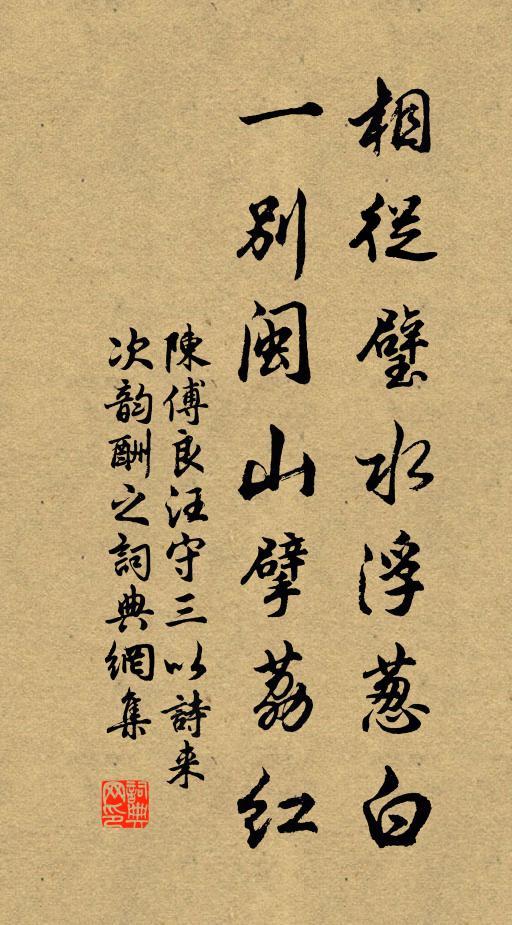 相從璧水浮葱白
一别闽山擘荔红
陳傅良汪守三以詩来
次韵酬之詞典網集
詞典网印